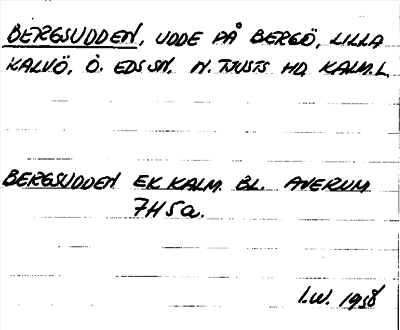 BERGSUDDEN, UDDE PÅ BERGÖ, LILLA
KALVÖ, Ö. EDS SN. N. TJUSTS HD KALM.L.
BERGSUDDEN EK KALM. BL. AVERUM
7H5a.
I.W. 1958